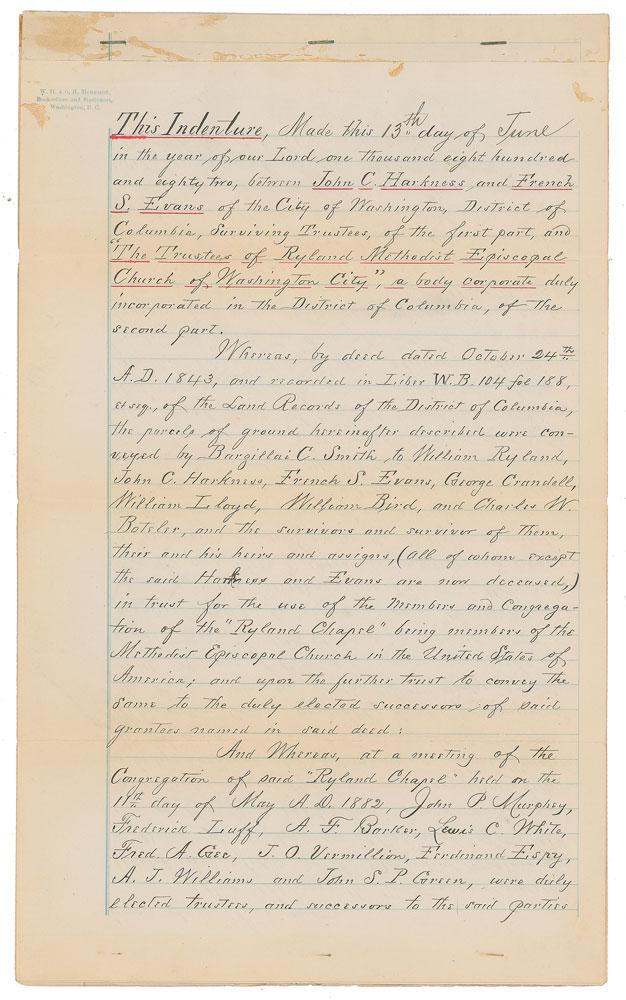 W. H. & O. H. Morrison,
Booksellers and Stationers,
Washington, D. C.
This Indenture, Made this 13th day of June
in the year of our Lord one thousand eight hundred
and eighty two, between John C. Harkness and French
S. Evans of the City of Washington, District of
Columbia, Surviving Trustees, of the first part, and
"The Trustees of Ryland Methodist Episcopal
Church of Washington City", a body corporate duly
incorporated in the District of Columbia, of the
second part.
Whereas, by deed dated October 24th
A.D. 1843, and recorded in Liber W.B. 104 fol 188,
et seq., of the Land Records of the District of Columbia,
the parcels of ground hereinafter described were con-
veyed by Bargillai C. Smith to William Ryland,
John C. Harkness, French S. Evans, George Crandell,
William Lloyd, William Bird, and Charles W.
Boteler, and the survivors and survivor of them,
their and his heirs and assigns, (all of whom except
the said Harkness and Evans are now deceased,)
in trust for the use of the Members and Congrega-
tion of the "Ryland Chapel" being members of the
Methodist Episcopal Church in the United States of
America; and upon the further trust to convey the
same to the duly elected successors of said
grantees named in said deed:
And Whereas, at a meeting of the
Congregation of said "Ryland Chapel" held on the
11th day of May A.D. 1882, John P. Murphey,
Frederick Luff, A. F. Barker, Lewis C. White,
Fred. A. Gee, J. O. Vermillion, Ferdinand Espy,
A. J. Williams and John S. P. Green, were duly
elected trustees, and successors to the said parties